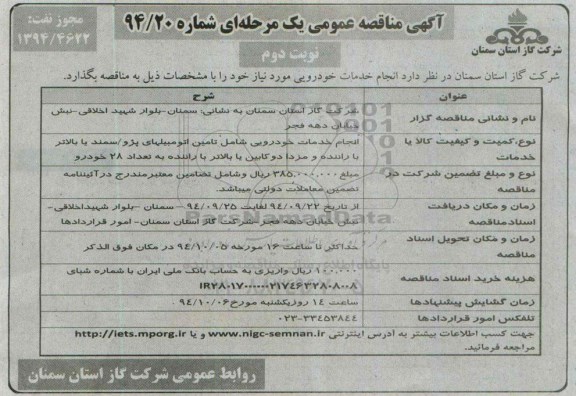 آگهی مناقصه عمومی یک مرحله‌ای شماره ۹۴/۲۰
مجوز نفت:
۱۳۹۴/۴۶۲۲
نوبت دوم
شرکت گاز استان سمنان
شرکت گاز استان سمنان در نظر دارد انجام خدمات خودرویی مورد نیاز خود را با مشخصات ذیل به مناقصه بگذارد.
عنوان
شرح
نام و نشانی مناقصه گزار
شرکت گاز استان سمنان به نشانی: سمنان-بلوار شهید اخلاقی-نبش
خیابان دهه فجر
نوع،کمیت و کیفیت کالا یا
خدمات
انجام خدمات خودرویی شامل تامین اتومبیلهای پژو/سمند یا بالاتر
با راننده و مزدا دوکابین یا بالاتر با راننده به تعداد ۲۸ خودرو
نوع و مبلغ تضمین شرکت در
مناقصه
مبلغ ۳۸۵,۰۰۰,۰۰۰ ریال وشامل تضامین معتبرمندرج درآئیننامه
تضمین معاملات دولتی میباشد.
زمان و مکان دریافت
اسنادمناقصه
از تاریخ ۹۴/۰۹/۲۲ لغایت ۹۴/۰۹/۲۵ – سمنان -بلوار شهیداخلاقی-
نبش خیابان دهه فجر-شرکت گاز استان سمنان- امور قراردادها
زمان و مکان تحویل اسناد
مناقصه
حداکثر تا ساعت ۱۶ مورخه ۹۴/۱۰/۰۵ در مکان فوق الذکر
هزینه خرید اسناد مناقصه
۱۰۰,۰۰۰ ریال واریزی به حساب بانک ملی ایران با شماره شبای
زمان گشایش پیشنهادها
ساعت ۱۴ روزیکشنبه مورخ۹۴/۱۰/۰۶ .
تلفکس امور قراردادها
۰۲۳-۳۳۴۵۳۸۴۴
جهت کسب اطلاعات بیشتر به آدرس اینترنتی www.nigc-semnan.ir و یا http://iets.mporg.ir
مراجعه فرمائید.
روابط عمومی شرکت گاز استان سمنان
ParsNamadData